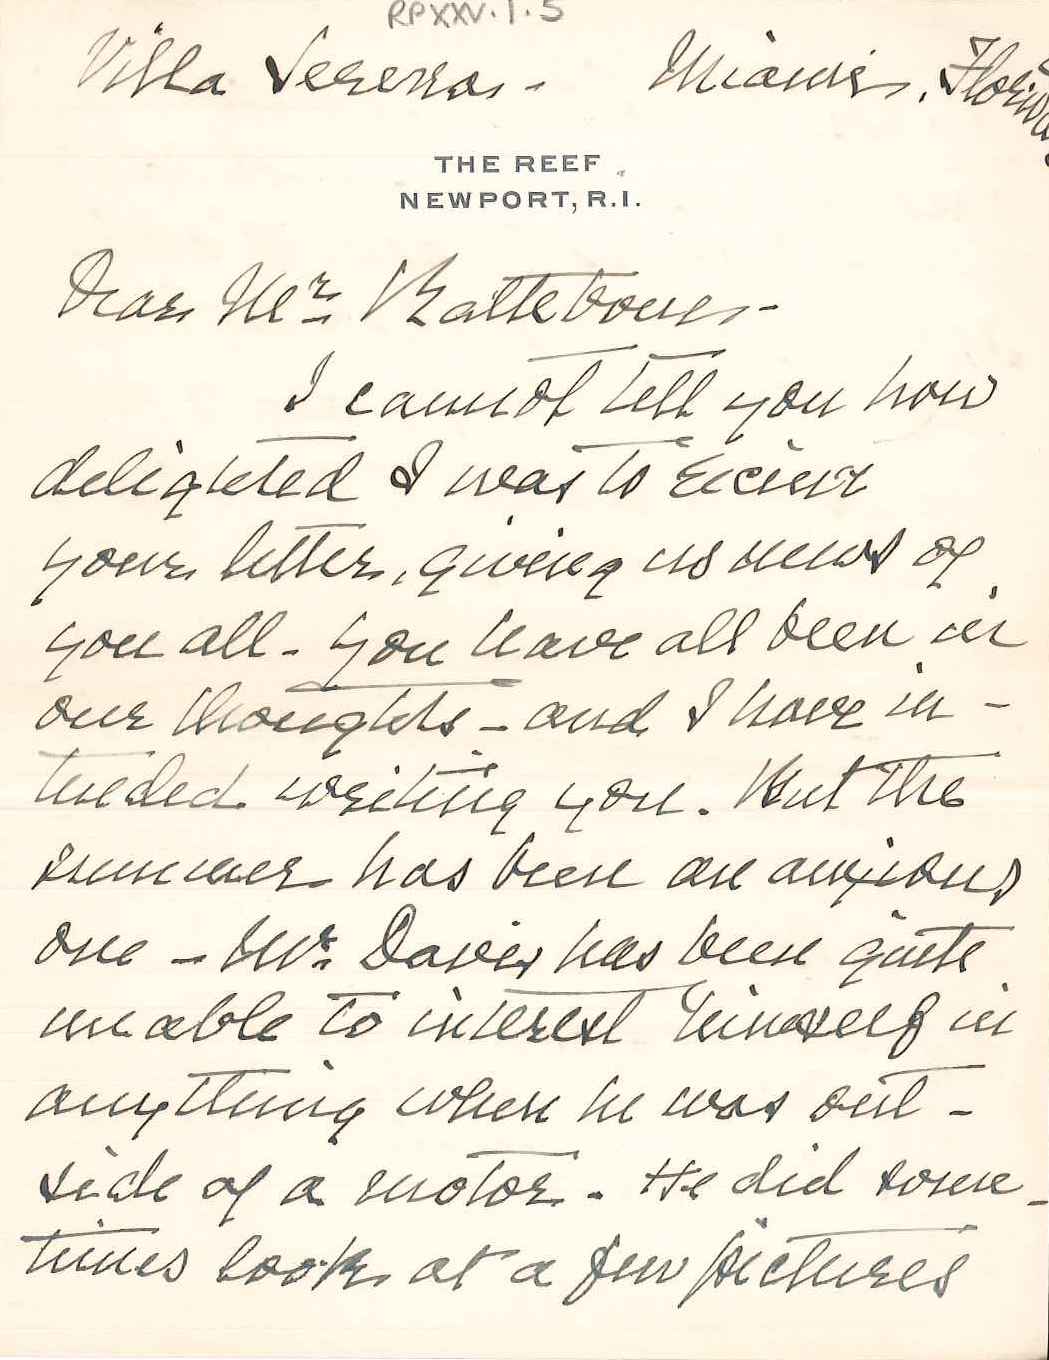 RPXXV.1.5
Villa Serena - Miami, Florida,
THE REEF
NEWPORT, R.I.
Dear Mr. Rattebone -
I cannot tell you how
delighted I was to receive
your letter, giving us news of
you all - you have all been in
our thoughts - and I have in -
tended writing you. But the
summer has been an anxious
one - Mr. Davis has been quite
unable to interest himself in
anything when he was out -
side of a motor. He did some -
times look at a few pictures